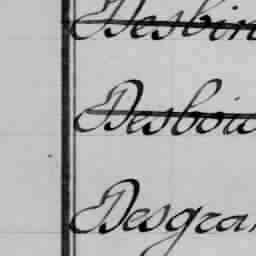 Desbin
Desbou
Desgra